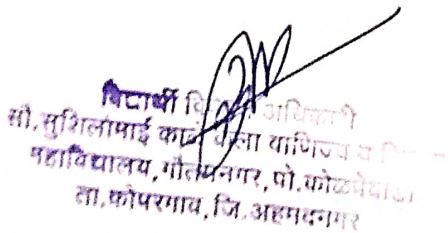 विद्यार्थी वि अधिकारी
सौ.सुशिलामाई काळे कला वाणिज्य व
महाविद्यालय, गौतमनगर, पो.कोळपेवाडी
ता.कोपरगाव, जि.अहमदनगर